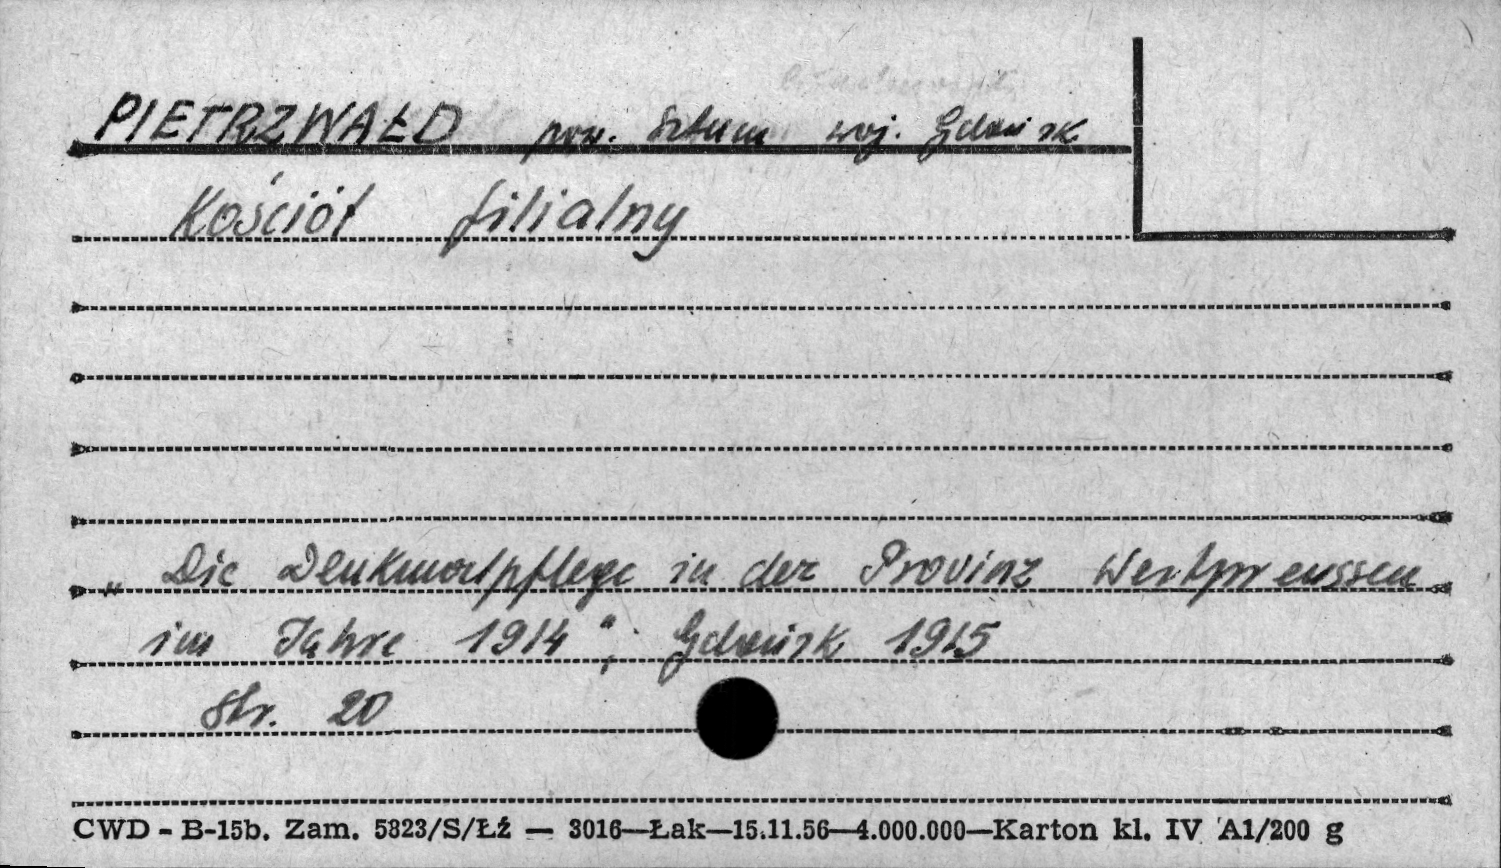 PIETRZWAŁD pow. Sztum woj. Gdańsk
Kościół filialny
„Die Denkmalpflege in der Provinz Westpreussen
im Jahre 1914"; Gdańsk 1915
Str. 20
CWD - B-15b. Zam. 5823/S/Łź — 3016—Łak—15.11.56—4.000.000—Karton kl. IV A1/200 g